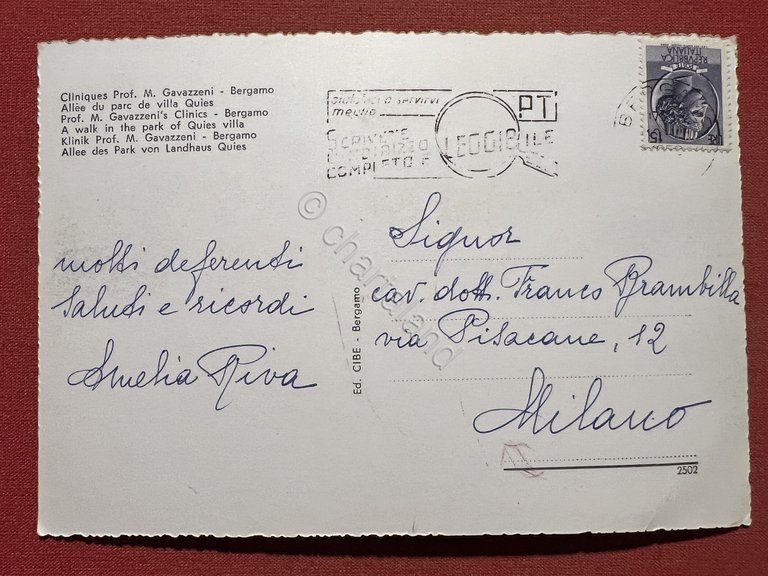 Cliniques Prof. M. Gavazzeni - Bergamo
Allèe du parc de villa Quies
Prof. M. Gavazzeni's Clinics - Bergamo
A walk in the park of Quies villa
Klinik Prof. M. Gavazzeni - Bergamo
Allee des Park von Landhaus Quies
aiutateci a servirvi
meglio
PT
SCRIVETE
INDIRIZZO LEGGIBILE
COMPLETO E
REPVBBLICA
ITALIANA
POSTE
LIRE 15
molti deferenti
saluti e ricordi
Amelia Riva
Ed. CIBE - Bergamo
Signor
cav. dott. Franco Brambilla
via Pisacane, 12
Milano
2502
© chartaland